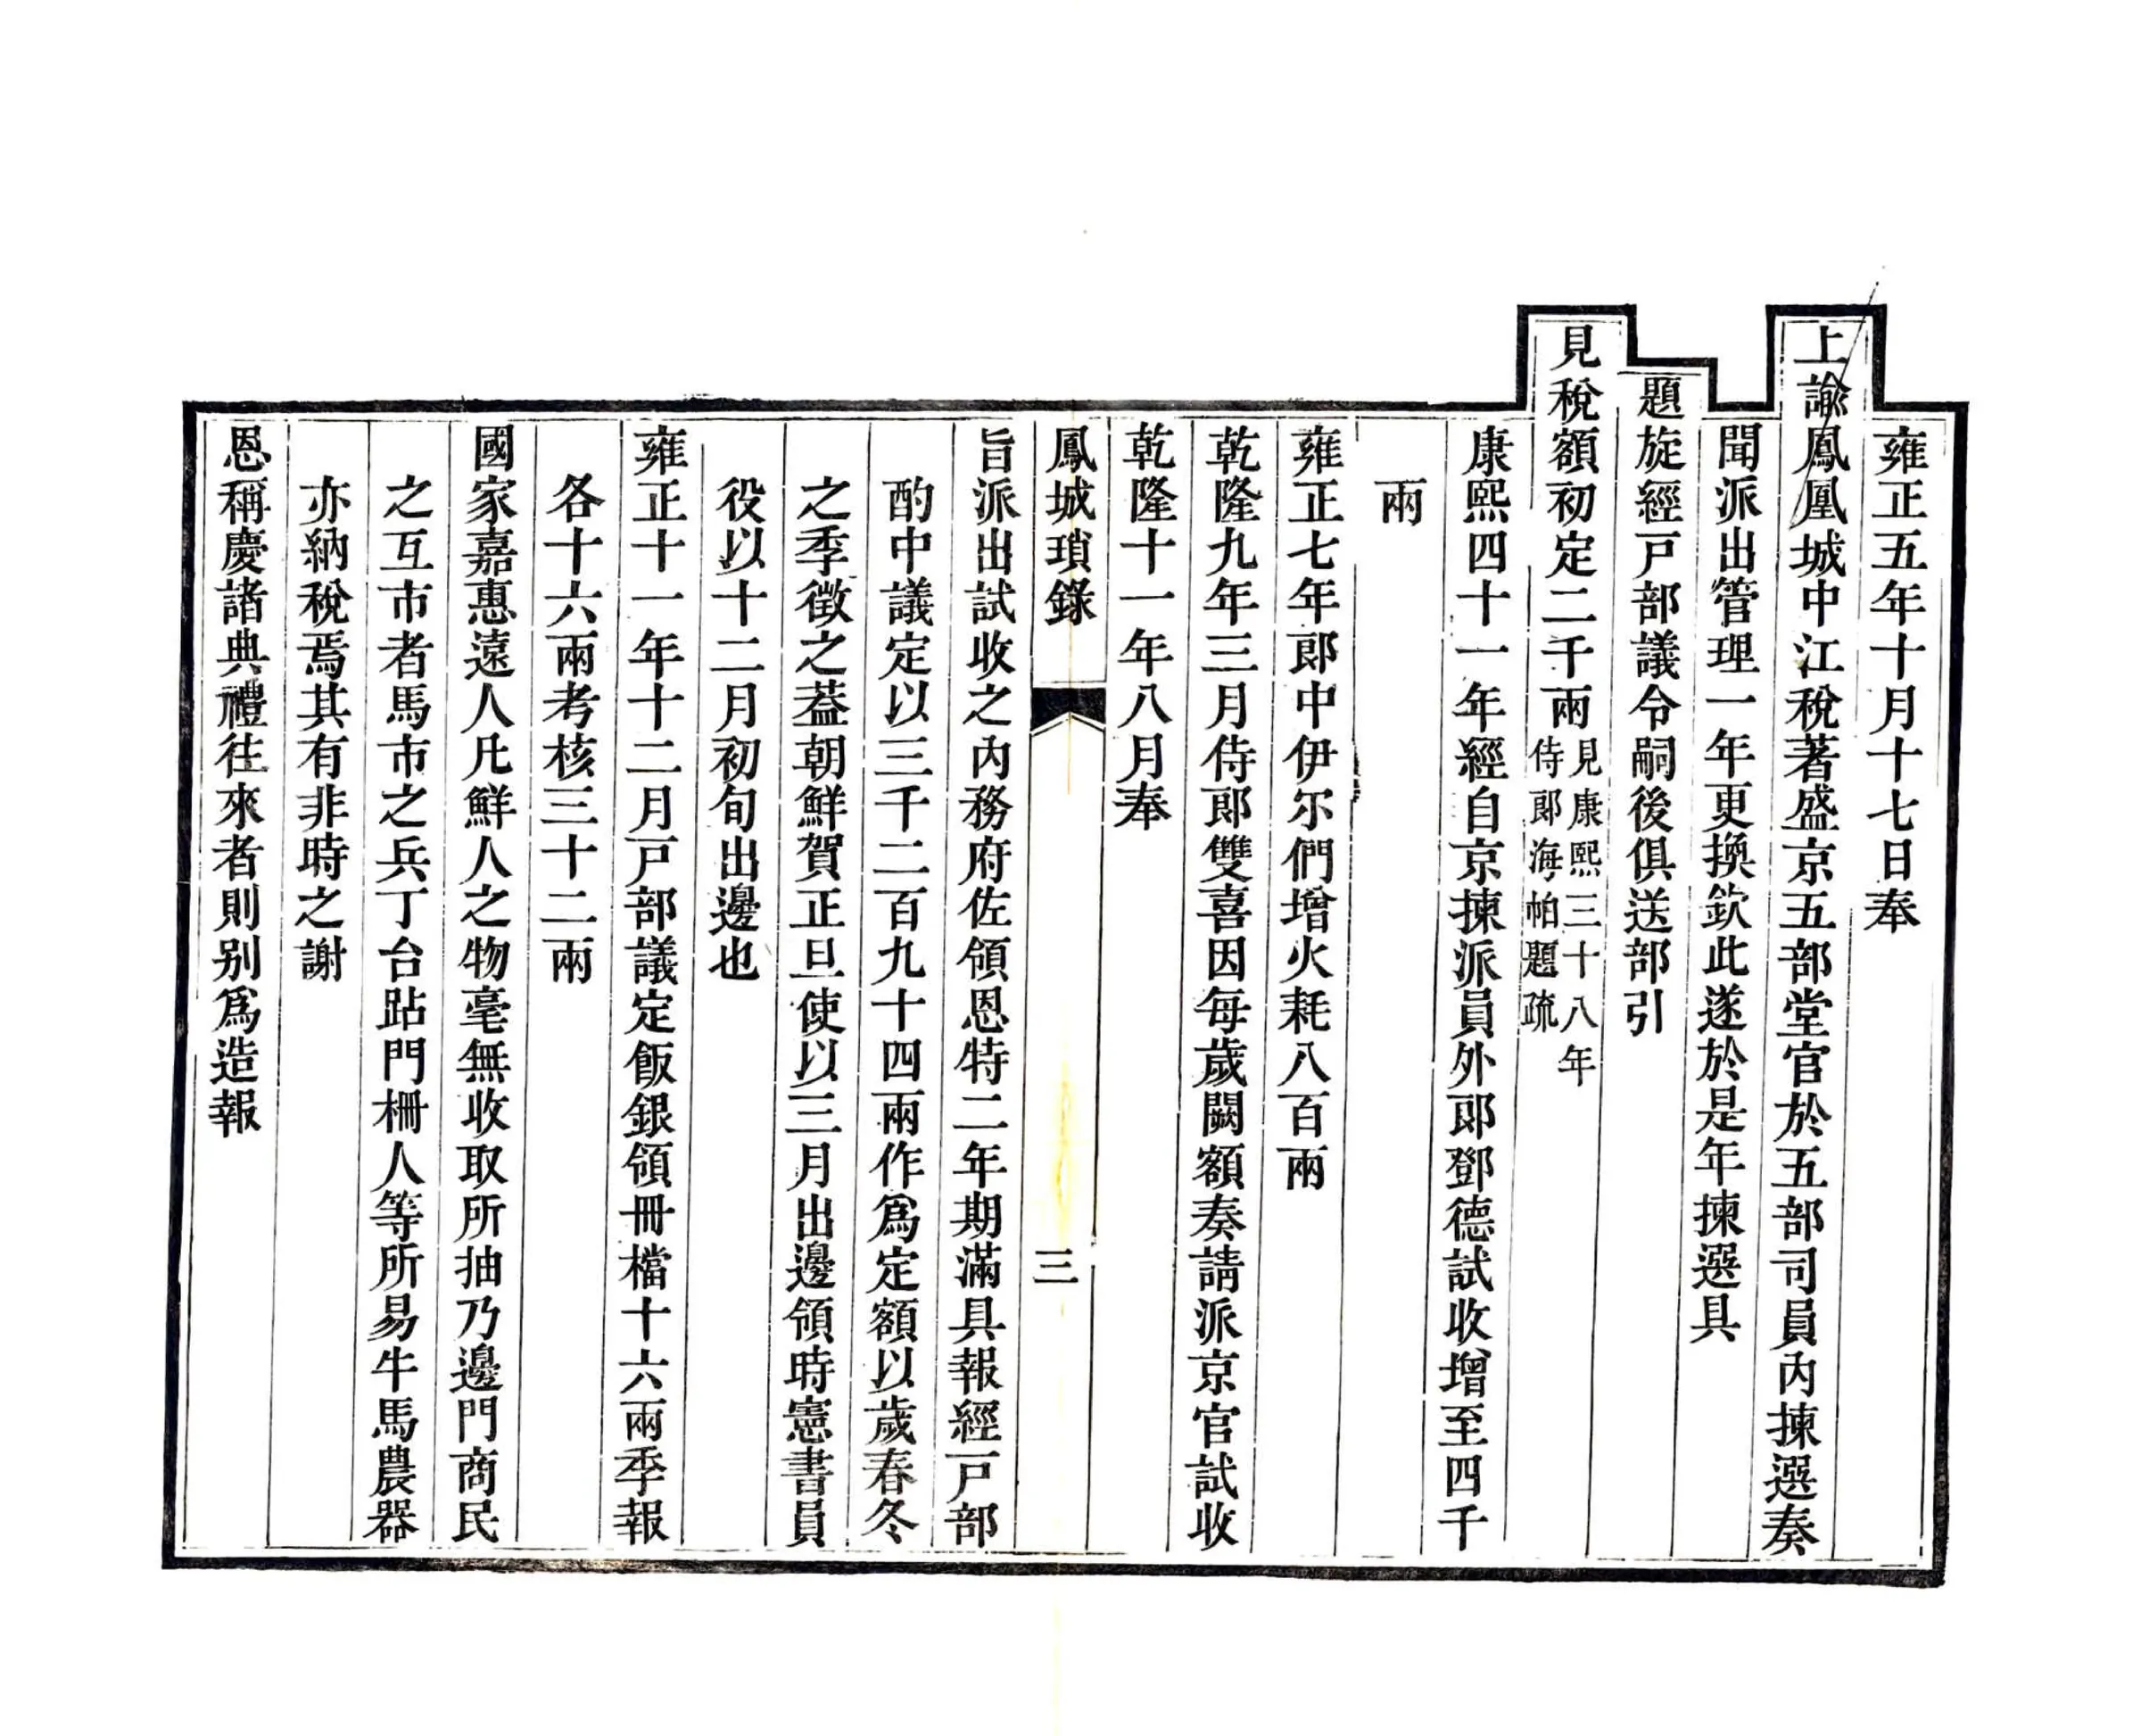 雍正五年十月十七日奉
上諭鳳凰城中江稅著盛京五部堂官於五部司員內揀選奏
聞派出管理一年更換欽此遂於是年揀選具
題旋經戸部議令嗣後俱送部引
見稅額初定二千兩見康熙三十八年
侍郞海帕題疏
康熙四十一年經自京揀派員外郞鄧德試收增至四千
兩
雍正七年郞中伊尔們增火耗八百兩
乾隆九年三月侍郞雙喜因每歲闕額奏請派京官試收
乾隆十一年八月奉
鳳城瑣錄
三
旨派出試收之內務府佐領恩特二年期滿具報經戸部
酌中議定以三千二百九十四兩作爲定額以歲春冬
之季徵之葢朝鮮賀正旦使以三月出邊領時憲書員
役以十二月初旬出邊也
雍正十一年十二月戸部議定飯銀領冊檔十六兩季報
各十六兩考核三十二兩
國家嘉惠遠人凡鮮人之物毫無收取所抽乃邊門商民
之互市者馬市之兵丁台跕門柵人等所易牛馬農器
亦納稅焉其有非時之謝
恩稱慶諸典禮往來者則别爲造報